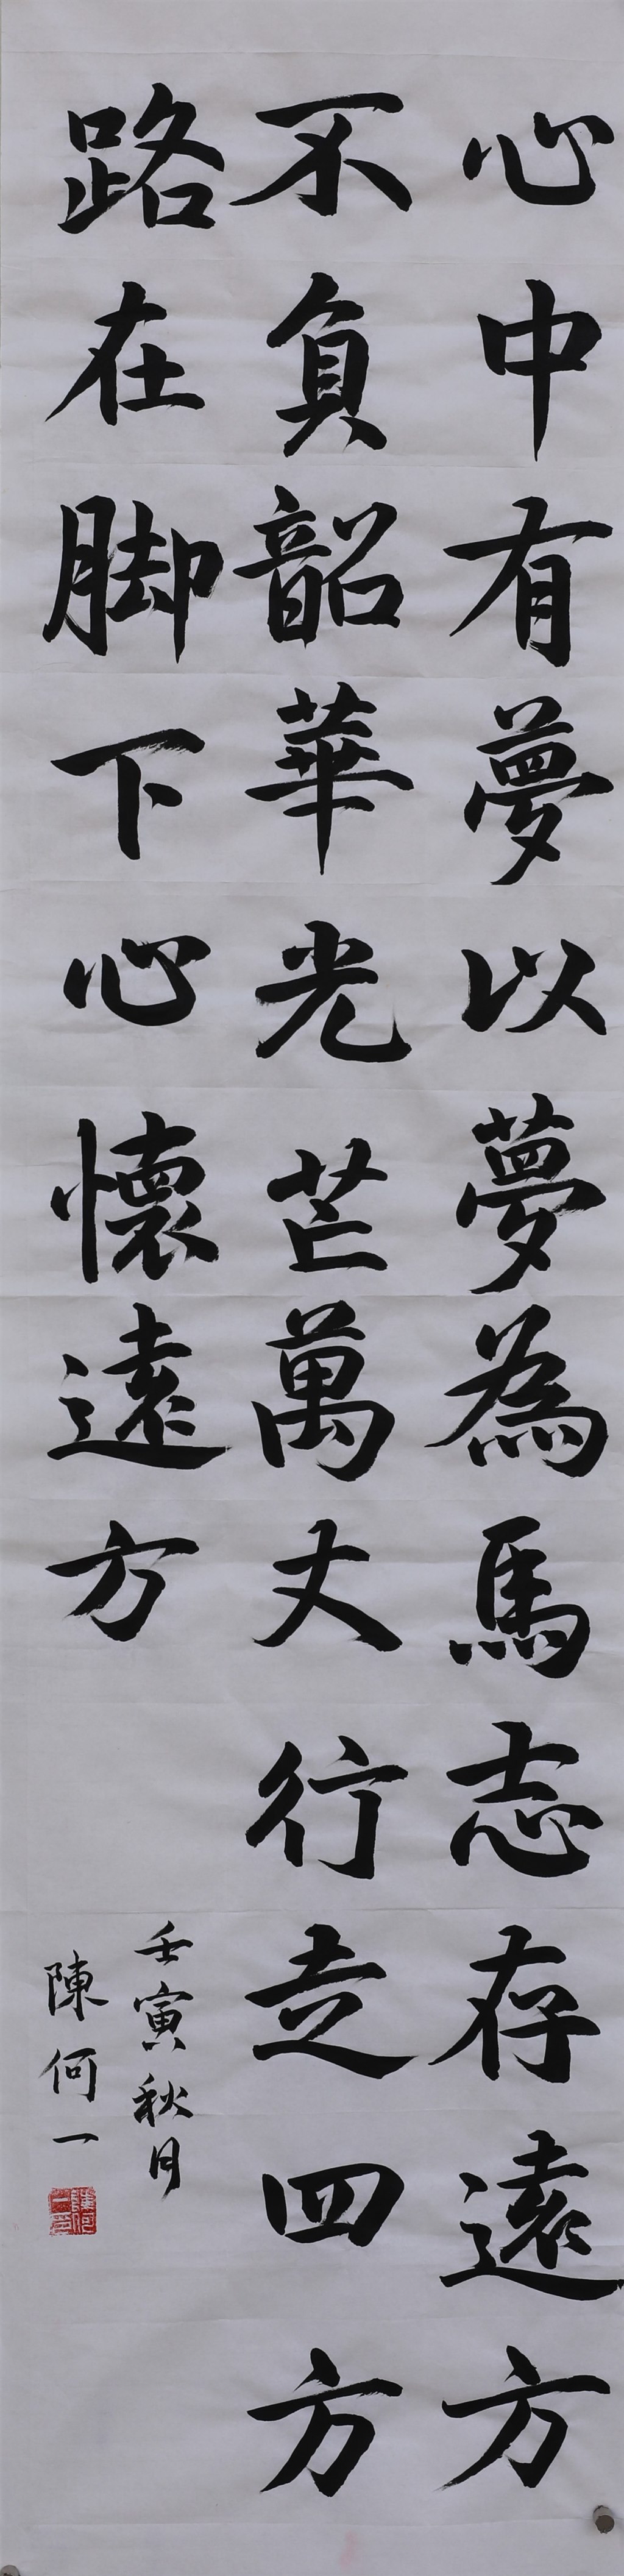 心中有夢以夢為馬志存遠方
不負韶華光芒萬丈行走四方
路在脚下心懷遠方
壬寅秋月
陳何一